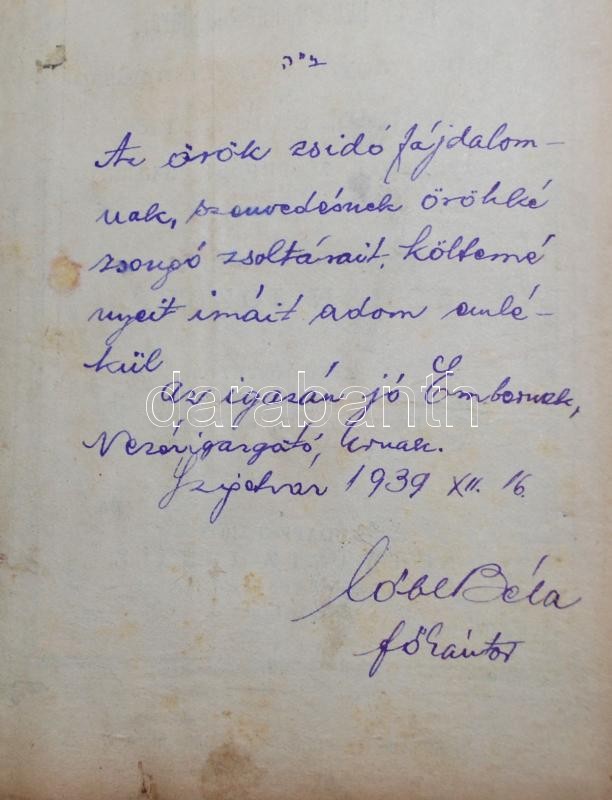 ב״ה
Az örök zsidó fájdalom-
nak, szenvedésnek örökké
zsongó zsoltárait, költemé
nyeit imáit adom emlé-
kül
az igazán jó Embernek,
Vezérigazgató, Urnak.
Szigetvár 1939 XII. 16.
Béla
főkántor
darabanth